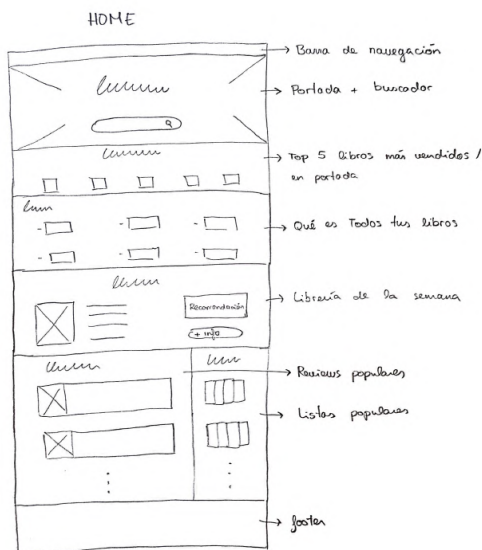 HOME
Barra de navegación
Portada + buscador
Top 5 libros más vendidos /
en portada
Qué es Todos tus libros
Librería de la semana
Recomendación
+ info
Reviews populares
Listas populares
footer